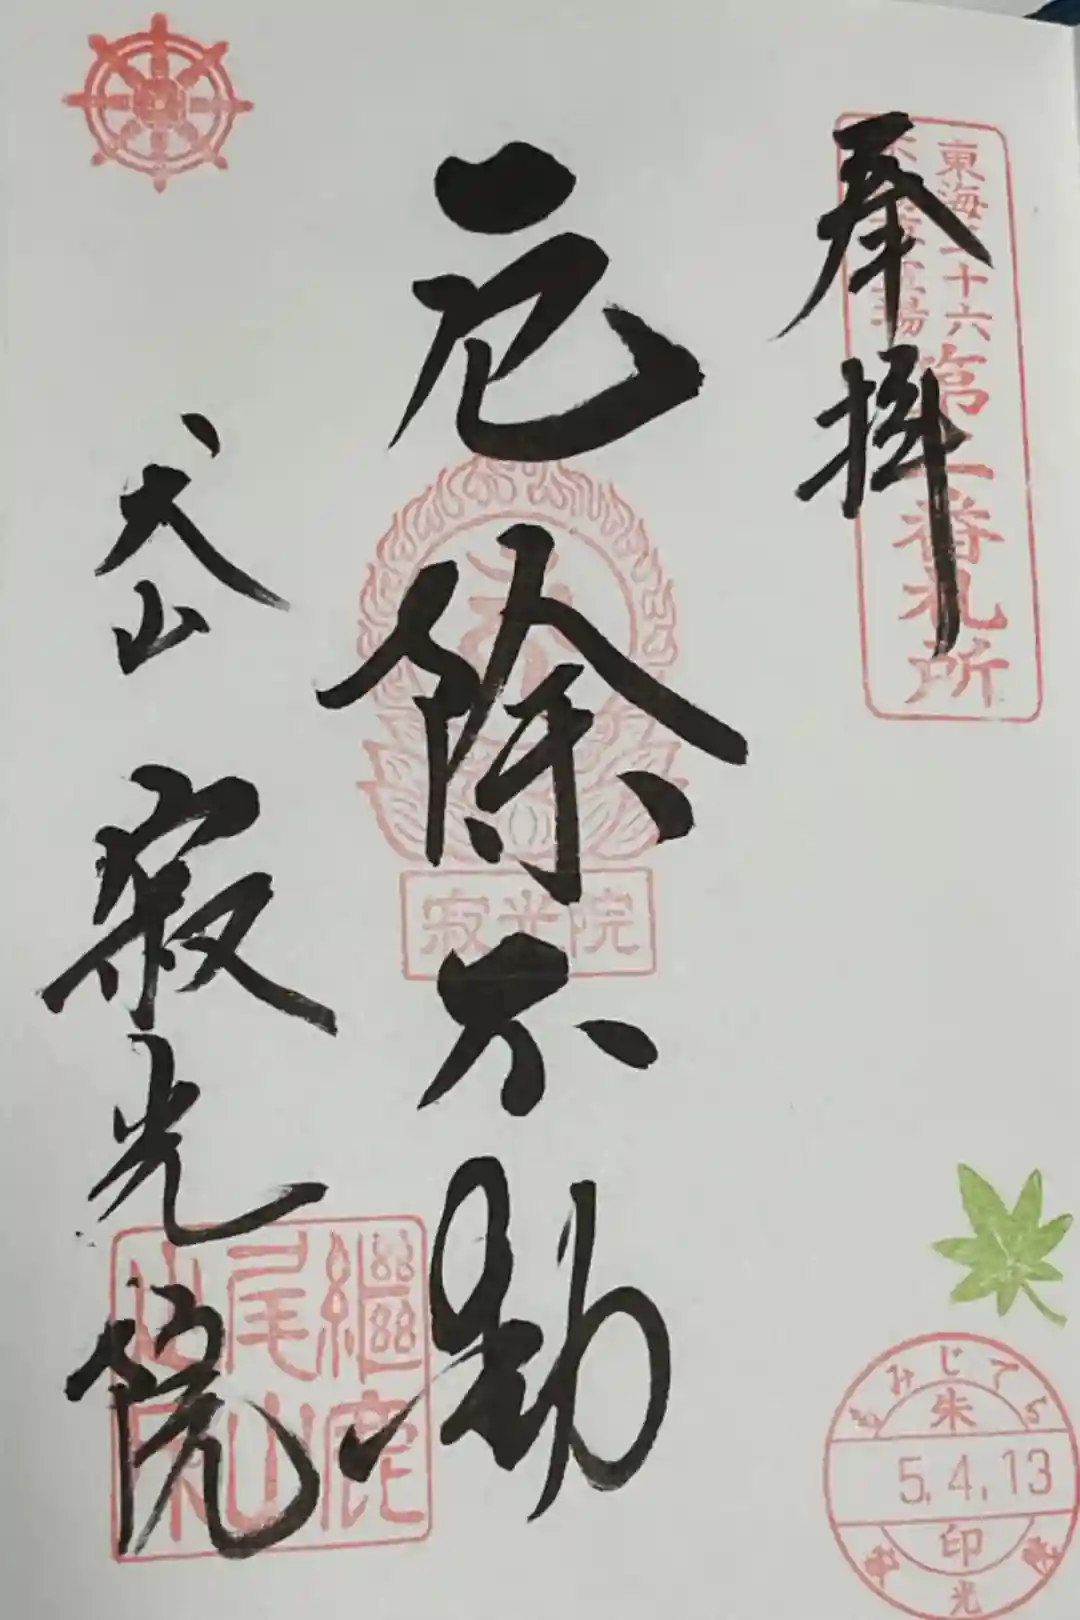 奉拝
東海三十六
不動尊霊場
第二番札所
厄除不動
寂光院
犬山 寂光院
継鹿
尾山
もみじでら
朱
5.4.13
印
寂光院